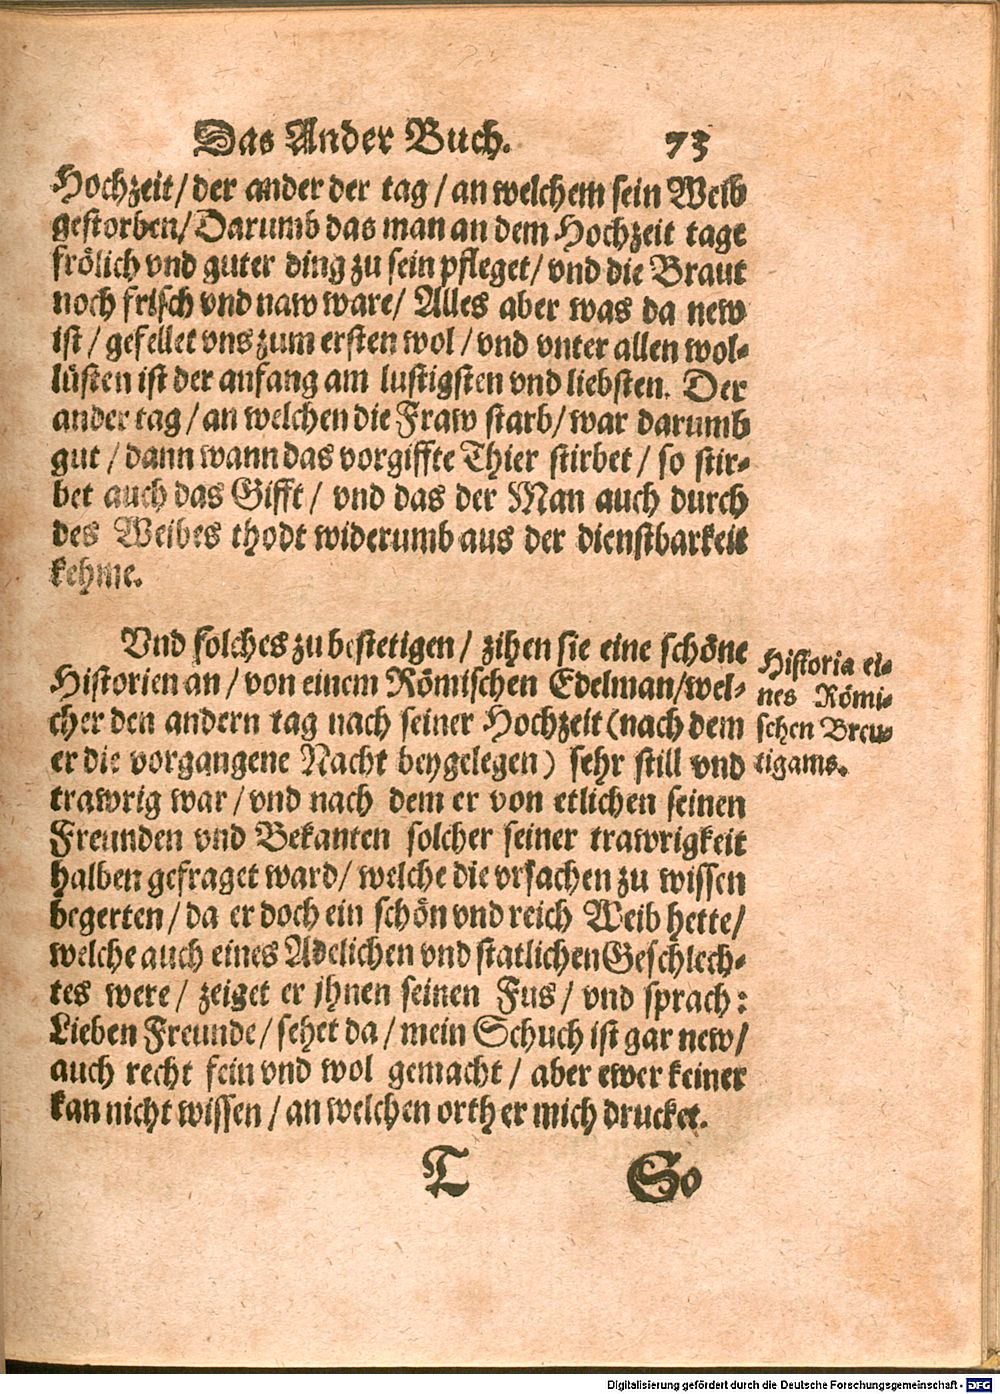 Das Ander Buch. 73
Hochzeit/ der ander der tag / an welchem sein Weib
gestorben/ Darumb das man an dem Hochzeit tage
frölich vnd guter ding zu sein pfleget/ vnd die Braut
noch frisch vnd naw ware/ Alles aber was da new
ist / gefellet vns zum ersten wol / vnd vnter allen wol-
lüsten ist der anfang am lustigsten vnd liebsten. Der
ander tag / an welchen die Fraw starb/ war darumb
gut / dann wann das vorgiffte Thier stirbet / so stir-
bet auch das Gifft / vnd das der Man auch durch
des Weibes thodt widerumb aus der dienstbarkeit
kehme.
Vnd solches zu bestetigen / zihen sie eine schöne
Historien an / von einem Römischen Edelman/wel-
cher den andern tag nach seiner Hochzeit (nach dem
er die vorgangene Nacht beygelegen) sehr still vnd
trawrig war / vnd nach dem er von etlichen seinen
Freunden vnd Bekanten solcher seiner trawrigkeit
halben gefraget ward/ welche die vrsachen zu wissen
begerten / da er doch ein schön vnd reich Weib hette/
welche auch eines Adelichen vnd statlichen Geschlech-
tes were / zeiget er jhnen seinen Fus / vnd sprach:
Lieben Freunde / sehet da / mein Schuch ist gar new/
auch recht fein vnd wol gemacht / aber ewer keiner
kan nicht wissen / an welchen orth er mich drucket.
Historia ei-
nes Römi-
schen Breu-
tigams.
T So
Digitalisierung gefördert durch die Deutsche Forschungsgemeinschaft - DFG